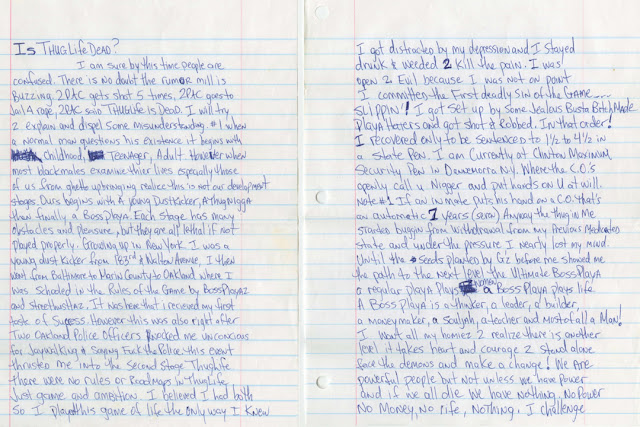 Is THUGLife DEAD?
I am sure by this time people are
confused. There is no doubt the rumor mill is
Buzzing. 2PAC gets shot 5 times, 2PAC goes to
Jail 4 rape, 2PAC said THUGLife is DEAD. I will try
2 explain and dispel some misunderstanding. #1 when
a normal man questions his existence it begins with
childhood, Teenager, Adult. However when
most blackmales examine thier lives especially those
of us from ghetto upbringing realice this is not our development
stages. Ours begins with A young Dustkicker, A thug Nigga
than finally a Boss Playa. Each stage has many
obstacles and pleasure, but they are all lethal if not
played properly. Growing up in New York. I was a
young dust kicker from 183rd & Walton Avenue, I then
went from Baltimore to Marin County to Oakland where I
was Schooled in the Rules of the Game by Boss Playaz
and Streethustlaz. It was here that I recieved my first
taste of Sucess. However this was also right after
Two Oakland Police Officers knocked me unconcious
for Jaywalking & Saying Fuck the Police. this event
thrusted me into the Second Stage Thuglife
There were no rules or Roadmaps in Thuglife
Just game and ambition. I believed I had both
So I played this game of life the only way I knew
I got distracted by my depression and I stayed
drunk & weeded 2 Kill the pain. I was
open 2 Evil because I was not on point
I committed the First deadly Sin of the Game....
SLIPPIN'! I got set up by Some Jealous Busta Bitch Made
Playa Haters and got shot & Robbed. In that order!
I recovered only to be Sentenced to 1½ to 4½ in
a State Pen. I am Currently at Clinton Maximum
Security Pen in Dannemora N.Y. Where the C.O.'s
openly call u Nigger and put hands on U at will.
Note #1 If an in mate puts his hand on a C.O. that's
an automatic 7 years Anyway the thug in Me
started buggin from withdrawal from my previous Medicated
state and under the pressure I nearly lost my mind.
Until the Seeds planted by G'z before me showed me
the path to the next level the Ultimate BossPlaya
a regular playa plays women a Boss Playa plays life.
A Boss Playa is a thinker, a leader, a builder,
a moneymaker, a souljah, a teacher and Most of all a Man!
I want all my homiez 2 realize there is another
level it takes heart and courage 2 stand alone
face the demons and make a change! We are
powerful people but not unless we have power
and if we all die we have nothing. No Power
No Money, No life, Nothing. I challenge